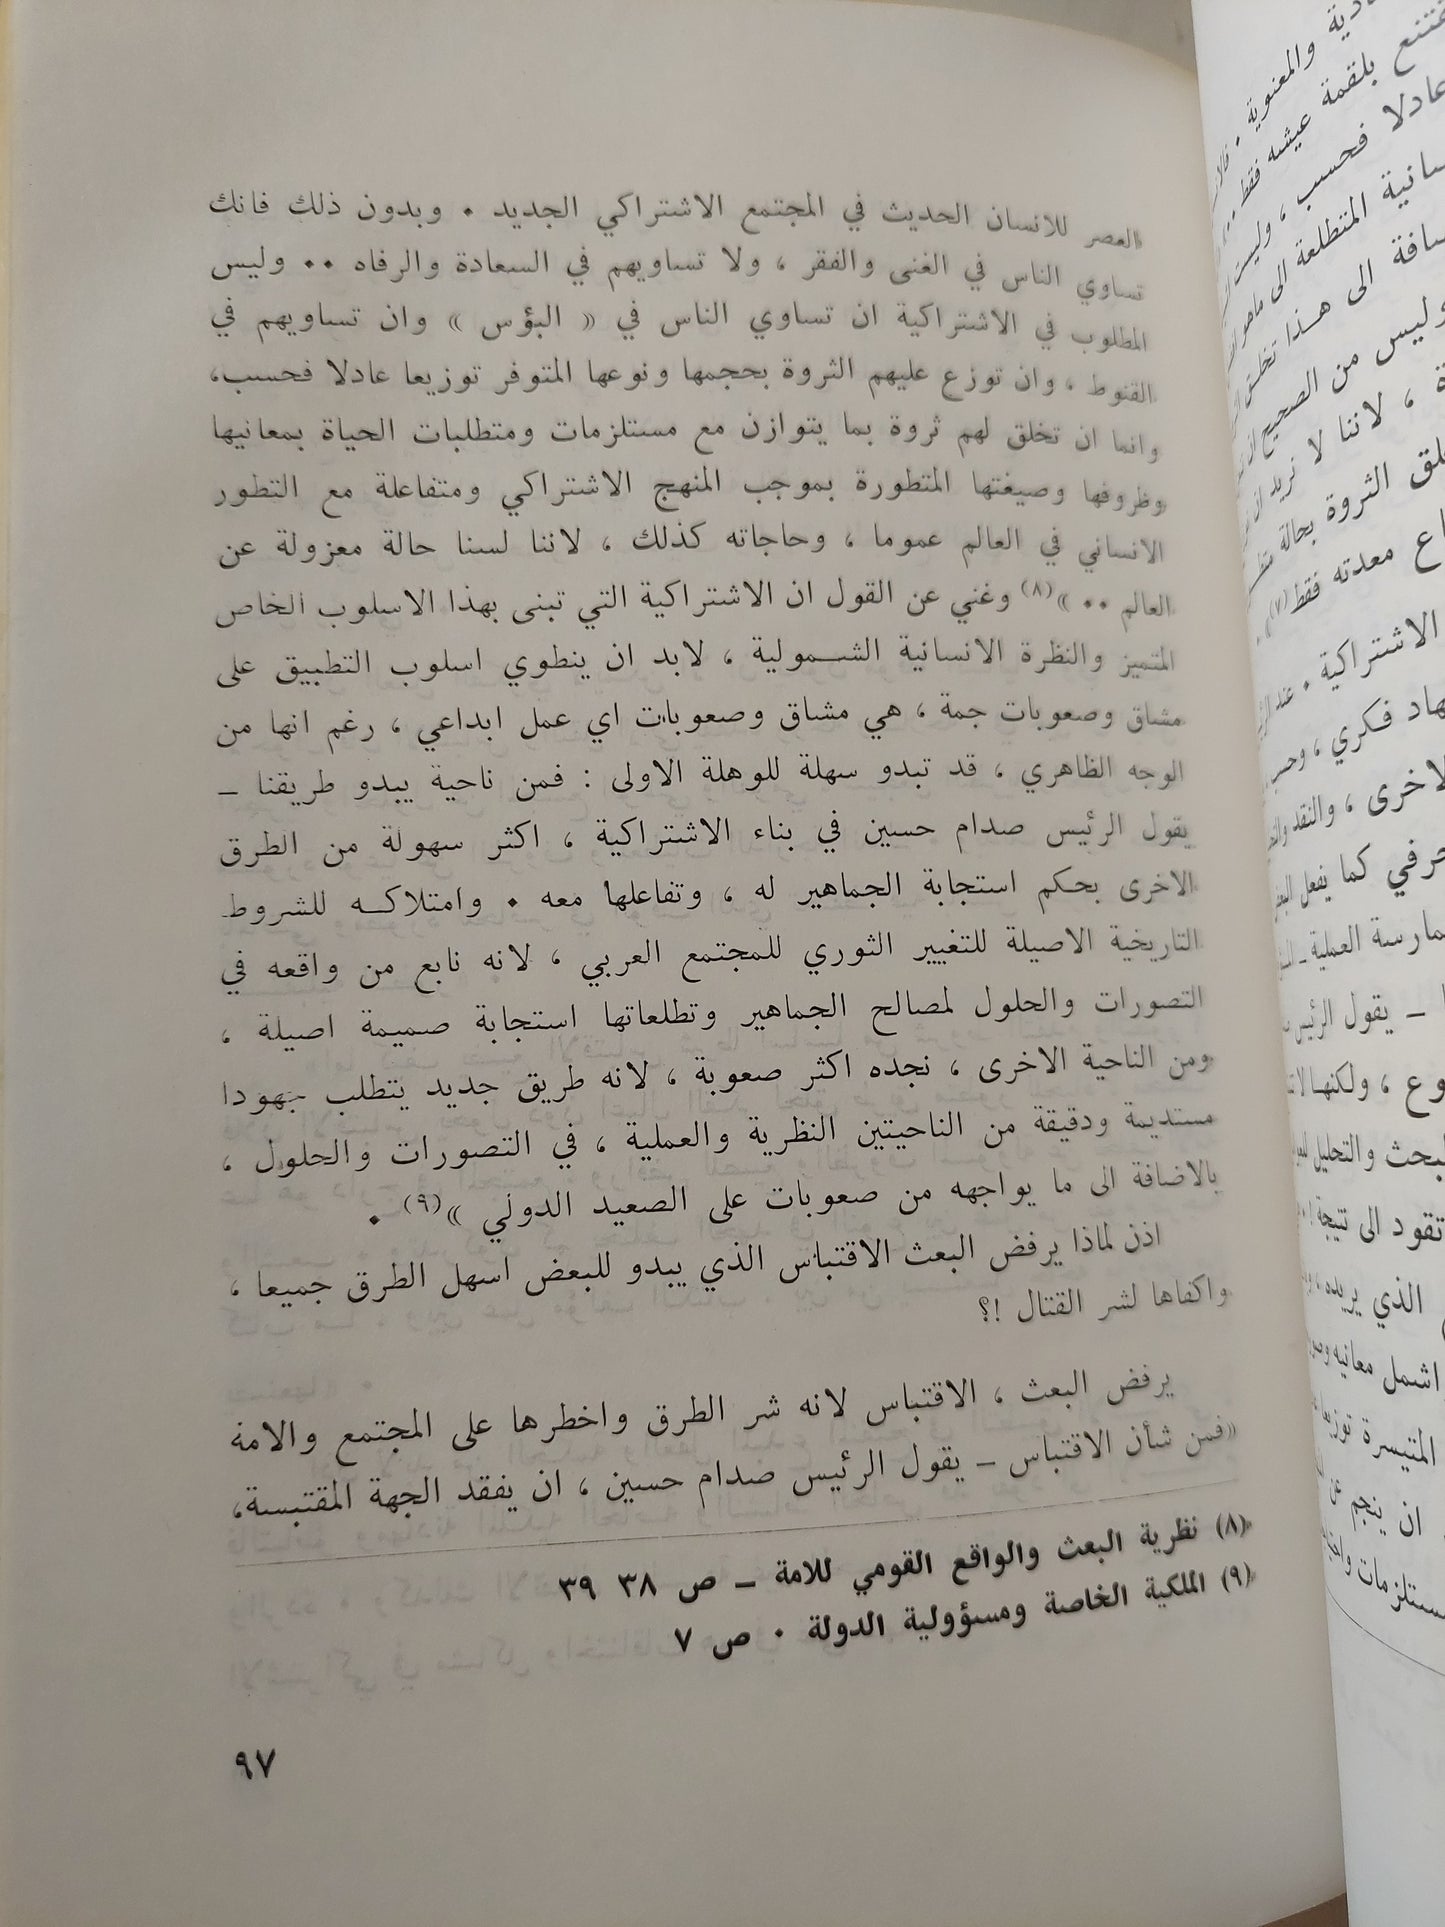 العصر للانسان الحديث في المجتمع الاشتراكي الجديد . وبدون ذلك فانك
تساوي الناس في الغنى والفقر ، ولا تساويهم في السعادة والرفاه .. وليس
المطلوب في الاشتراكية ان تساوي الناس في « البؤس » وان تساويهم في
القنوط ، وان توزع عليهم الثروة بحجمها ونوعها المتوفر توزيعا عادلا فحسب،
وانما ان تخلق لهم ثروة بما يتوازن مع مستلزمات ومتطلبات الحياة بمعانيها
وظروفها وصيغتها المتطورة بموجب المنهج الاشتراكي ومتفاعلة مع التطور
الانساني في العالم عموما ، وحاجاته كذلك ، لاننا لسنا حالة معزولة عن
العالم .. »(٨) وغني عن القول ان الاشتراكية التي تبنى بهذا الاسلوب الخاص
المتميز والنظرة الانسانية الشمولية ، لابد ان ينطوي اسلوب التطبيق على
مشاق وصعوبات جمة ، هي مشاق وصعوبات اي عمل ابداعي ، رغم انها من
الوجه الظاهري ، قد تبدو سهلة للوهلة الاولى : فمن ناحية يبدو طريقنا –
يقول الرئيس صدام حسين في بناء الاشتراكية ، اكثر سهولة من الطرق
الاخرى بحكم استجابة الجماهير له ، وتفاعلها معه . وامتلاكه للشروط
التاريخية الاصيلة للتغيير الثوري للمجتمع العربي ، لانه نابع من واقعه في
التصورات والحلول لمصالح الجماهير وتطلعاتها استجابة صميمة اصيلة ،
ومن الناحية الاخرى ، نجده اكثر صعوبة ، لانه طريق جديد يتطلب جهودا
مستديمة ودقيقة من الناحيتين النظرية والعملية ، في التصورات والحلول ،
بالاضافة الى ما يواجهه من صعوبات على الصعيد الدولي »(٩) .
اذن لماذا يرفض البعث الاقتباس الذي يبدو للبعض اسهل الطرق جميعا ،
واكفاها لشر القتال !؟
يرفض البعث ، الاقتباس لانه شر الطرق واخطرها على المجتمع والامة
«فمن شأن الاقتباس – يقول الرئيس صدام حسين ، ان يفقد الجهة المقتبسة،
(٨) نظرية البعث والواقع القومي للامة – ص ٣٨ ٣٩
(٩) الملكية الخاصة ومسؤولية الدولة . ص ٧
٩٧
والمعنوية .
بلقمة عيشه فقط ..
عادلا فحسب ، وليست
المتطلعة الى ماهو
الى هذا تخلق
وليس من الصحيح ان
، لاننا لا نريد ان
الثروة بحالة
معدته فقط (٧)
الاشتراكية . عند
فكري ، وحسب
الاخرى ، والنقد
حرفي كما يفعل البعض
العملية –
– يقول الرئيس
، ولكنها لا
والتحليل
تقود الى نتيجة
الذي يريده
اشمل معانيه
المتيسرة توزيعا
ان ينجم عن